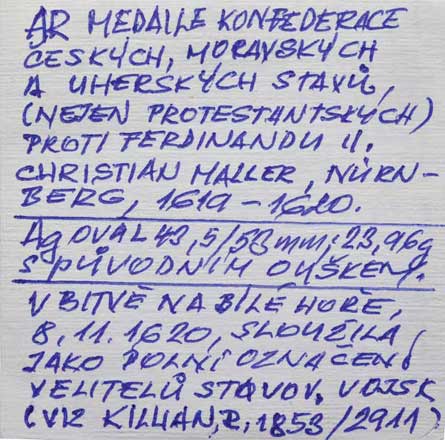 AR MEDAILE KONFEDERACE
ČESKÝCH, MORAVSKÝCH
A UHERSKÝCH STAVŮ,
(NEJEN PROTESTANTSKÝCH)
PROTI FERDINANDU II.
CHRISTIAN MALLER, NÜRN-
BERG, 1619-1620.
Ag OVAL 43,5/53mm; 23,96g
S PŮVODNÍM OUŠKEM.
V BITVĚ NA BÍLÉ HOŘE,
8.11.1620, SLOUŽILA
JAKO POLNÍ OZNAČENÍ
VELITELŮ STAVOV. VOJSK
(VIZ KILLIAN, R, 1853/2911)